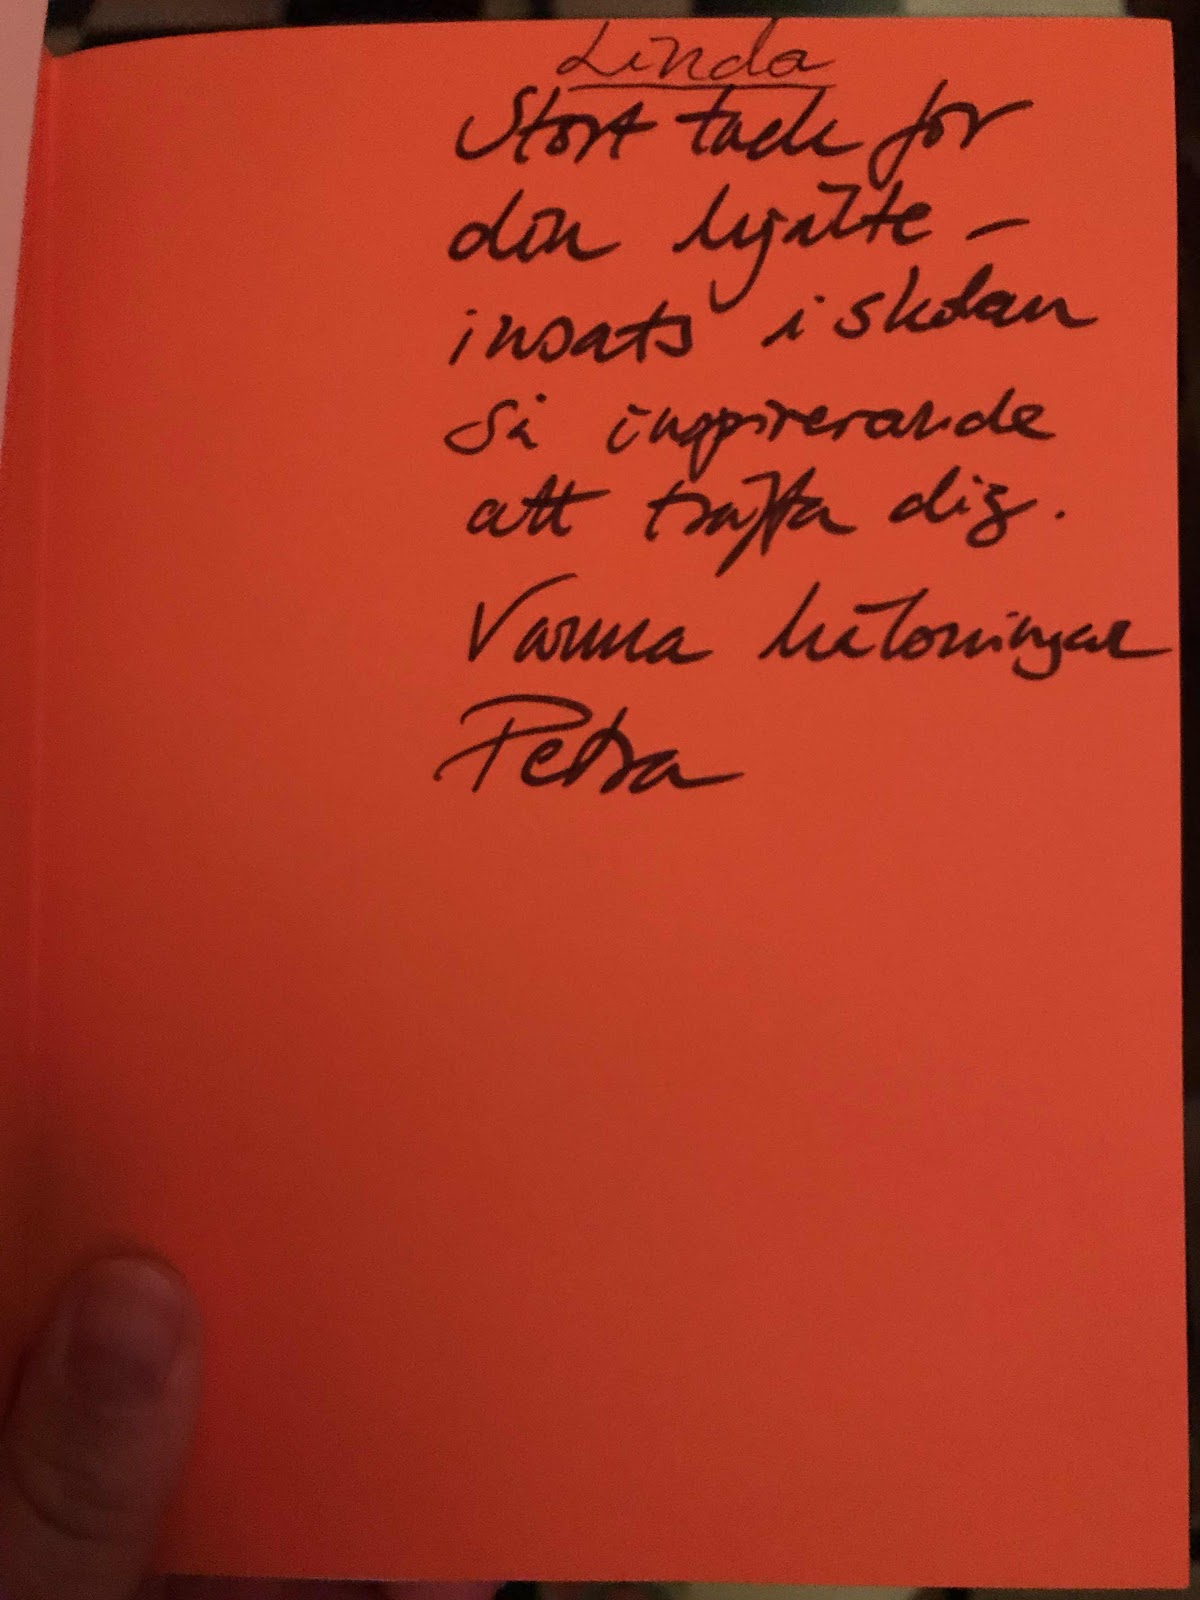 Linda
Stort tack för
din hjälte-
insats i skolan
Så inspirerande
att träffa dig.
Varma hälsningar
Petra